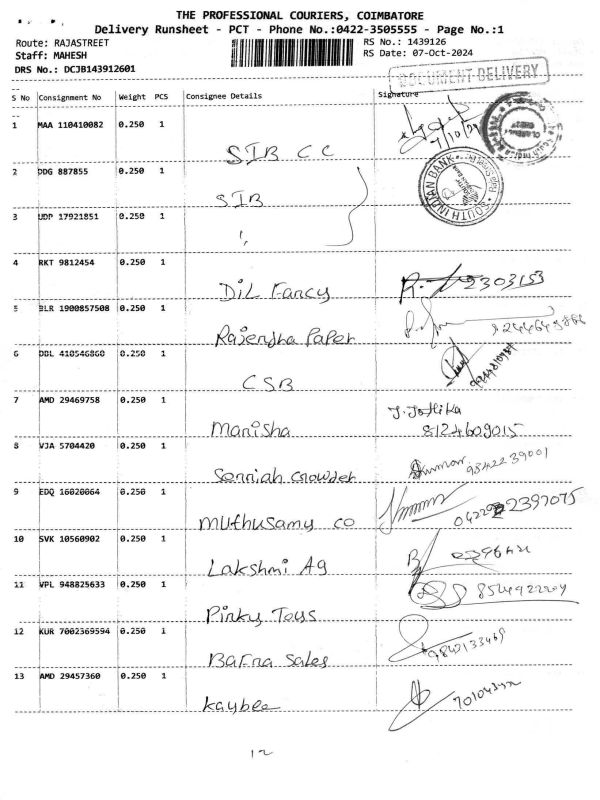 THE PROFESSIONAL COURIERS, COIMBATORE
Delivery Runsheet - PCT - Phone No.:0422-3505555 - Page No.:1
Route: RAJASTREET
RS No.: 1439126
Staff: MAHESH
RS Date: 07-Oct-2024
DRS No.: DCJB143912601
DOCUMENT DELIVERY
S No Consignment No Weight PCS Consignee Details Signature
1 MAA 110410082 0.250 1
SIB CC
7/10/24
2 DDG 887855 0.250 1
SIB
SOUTH INDIAN BANK
3 UDP 17921851 0.250 1
4 RKT 9812454 0.250 1
DiL Fancy
2303153
5 BLR 1900857508 0.250 1
Rajendha Paper
6 DBL 410546860 0.250 1
CSB
7 AMD 29469758 0.250 1
J. Jothika
Manisha 8124609015
8 VJA 5704420 0.250 1
Senniah Crowder
9842239001
9 EDQ 16020064 0.250 1
Muthusamy co
2397075
10 SVK 10560902 0.250 1
Lakshmi Ag
11 VPL 948825633 0.250 1
Pinky Toys
12 KUR 7002369594 0.250 1
Bafna Sales
9842133469
13 AMD 29457360 0.250 1
Kaybee
12